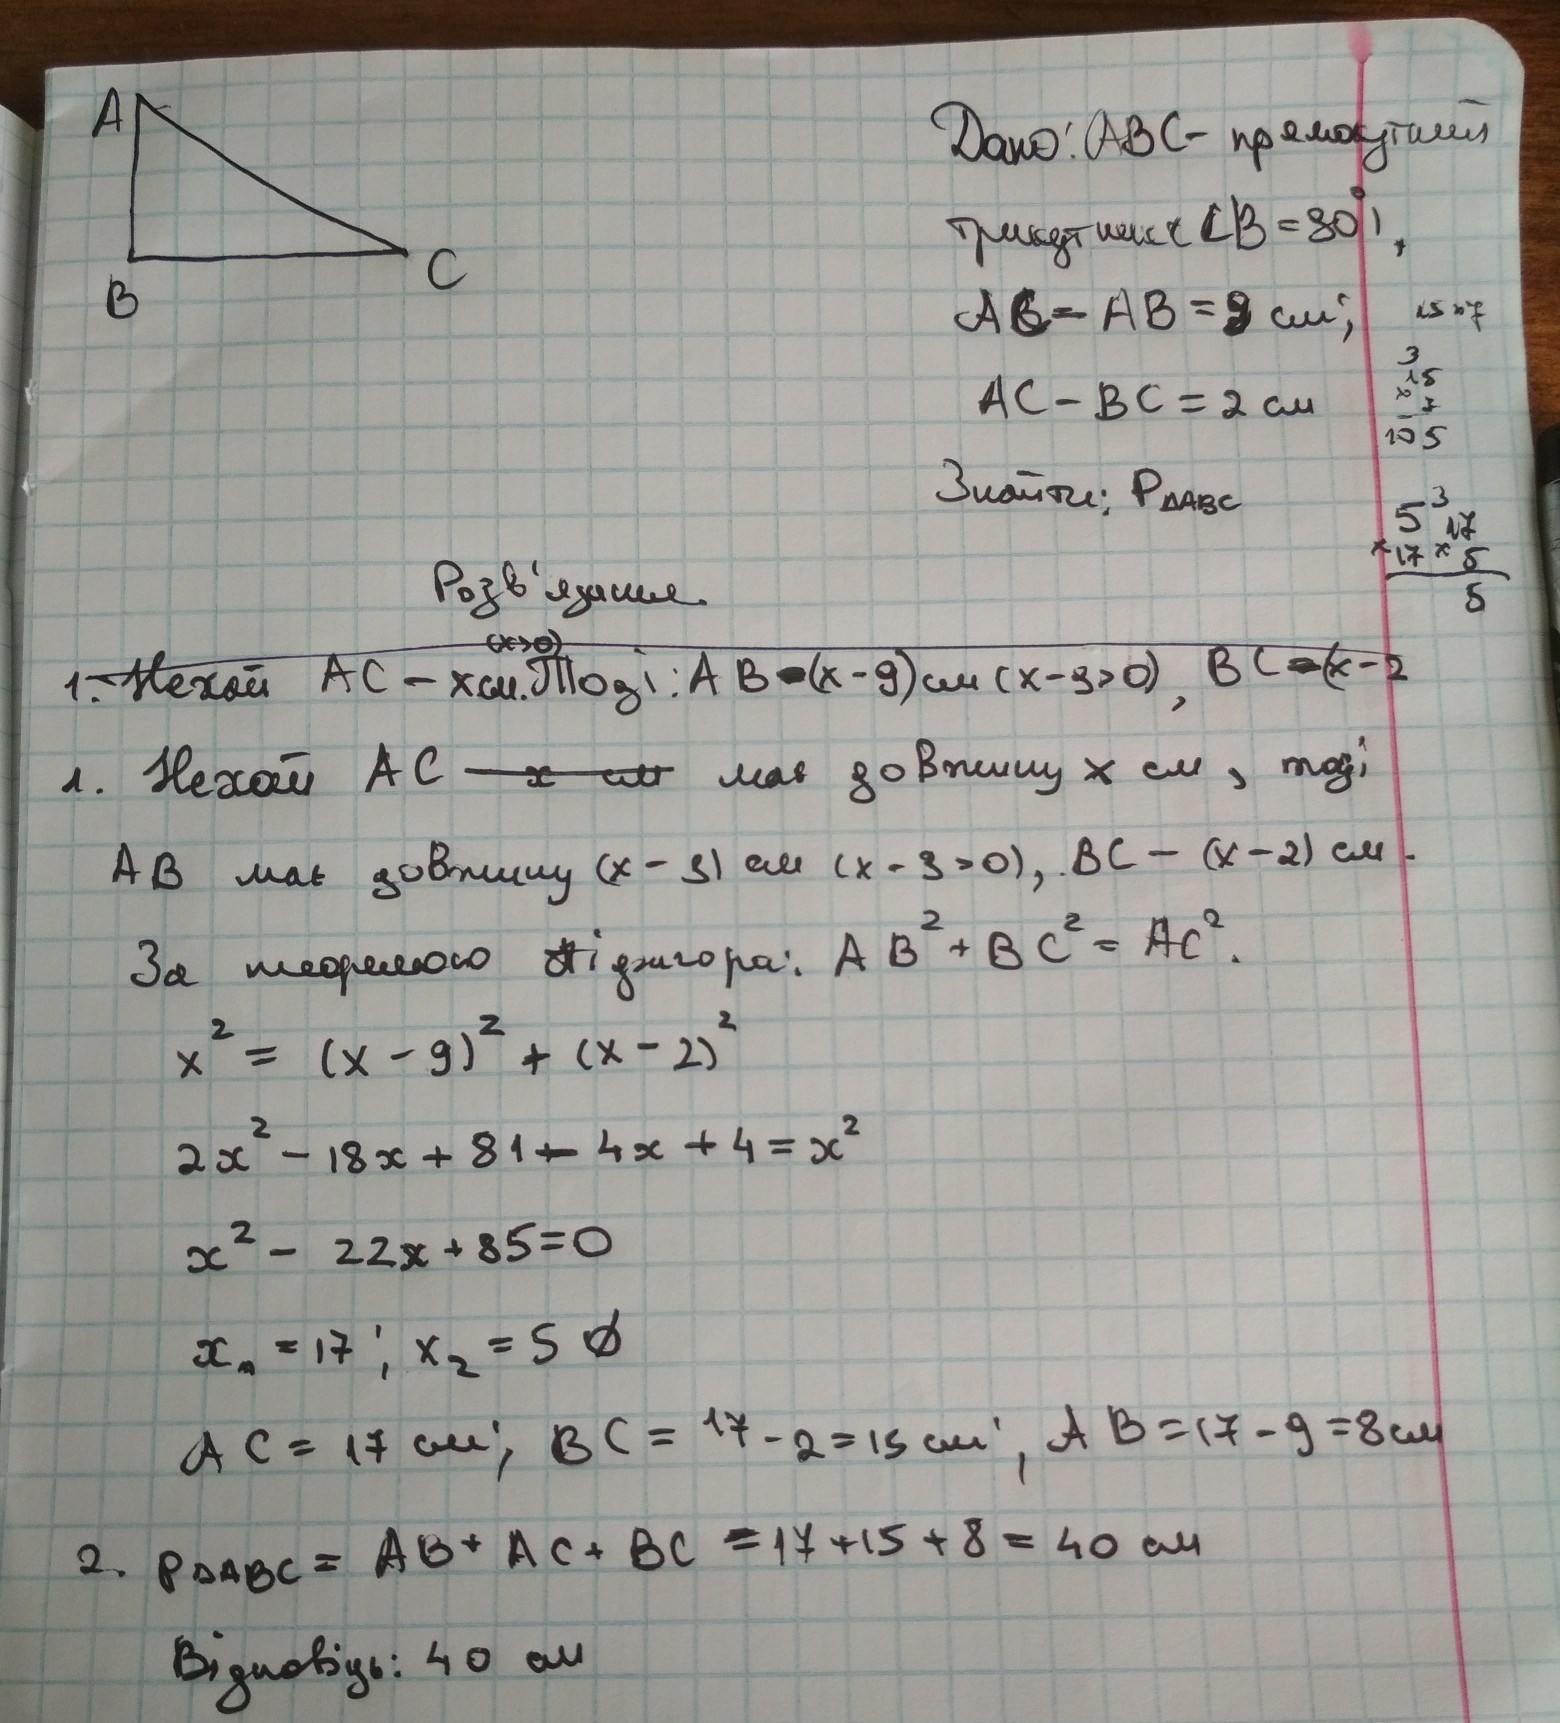 A
B
C
Дано: ABC - прямокутний
трикутник (∠B = 90°),
AC - AB = 9 см;
AC - BC = 2 см
Знайти: P∆ABC
15 × 7
3
15
× 7
105
3
5 17
× 17 × 5
5
Розв'язання
(x>0)
1. Нехай AC - x см. Тоді: AB = (x - 9) см (x - 9 > 0), BC = (x - 2
1. Нехай AC - x см має довжину x см, тоді
AB має довжину (x - 9) см (x - 9 > 0), BC - (x - 2) см.
За теоремою Піфагора: AB² + BC² = AC².
x² = (x - 9)² + (x - 2)²
2x² - 18x + 81 - 4x + 4 = x²
x² - 22x + 85 = 0
x₁ = 17; x₂ = 5 ∅
AC = 17 см; BC = 17 - 2 = 15 см; AB = 17 - 9 = 8 см
2. P∆ABC = AB + AC + BC = 17 + 15 + 8 = 40 см
Відповідь: 40 см